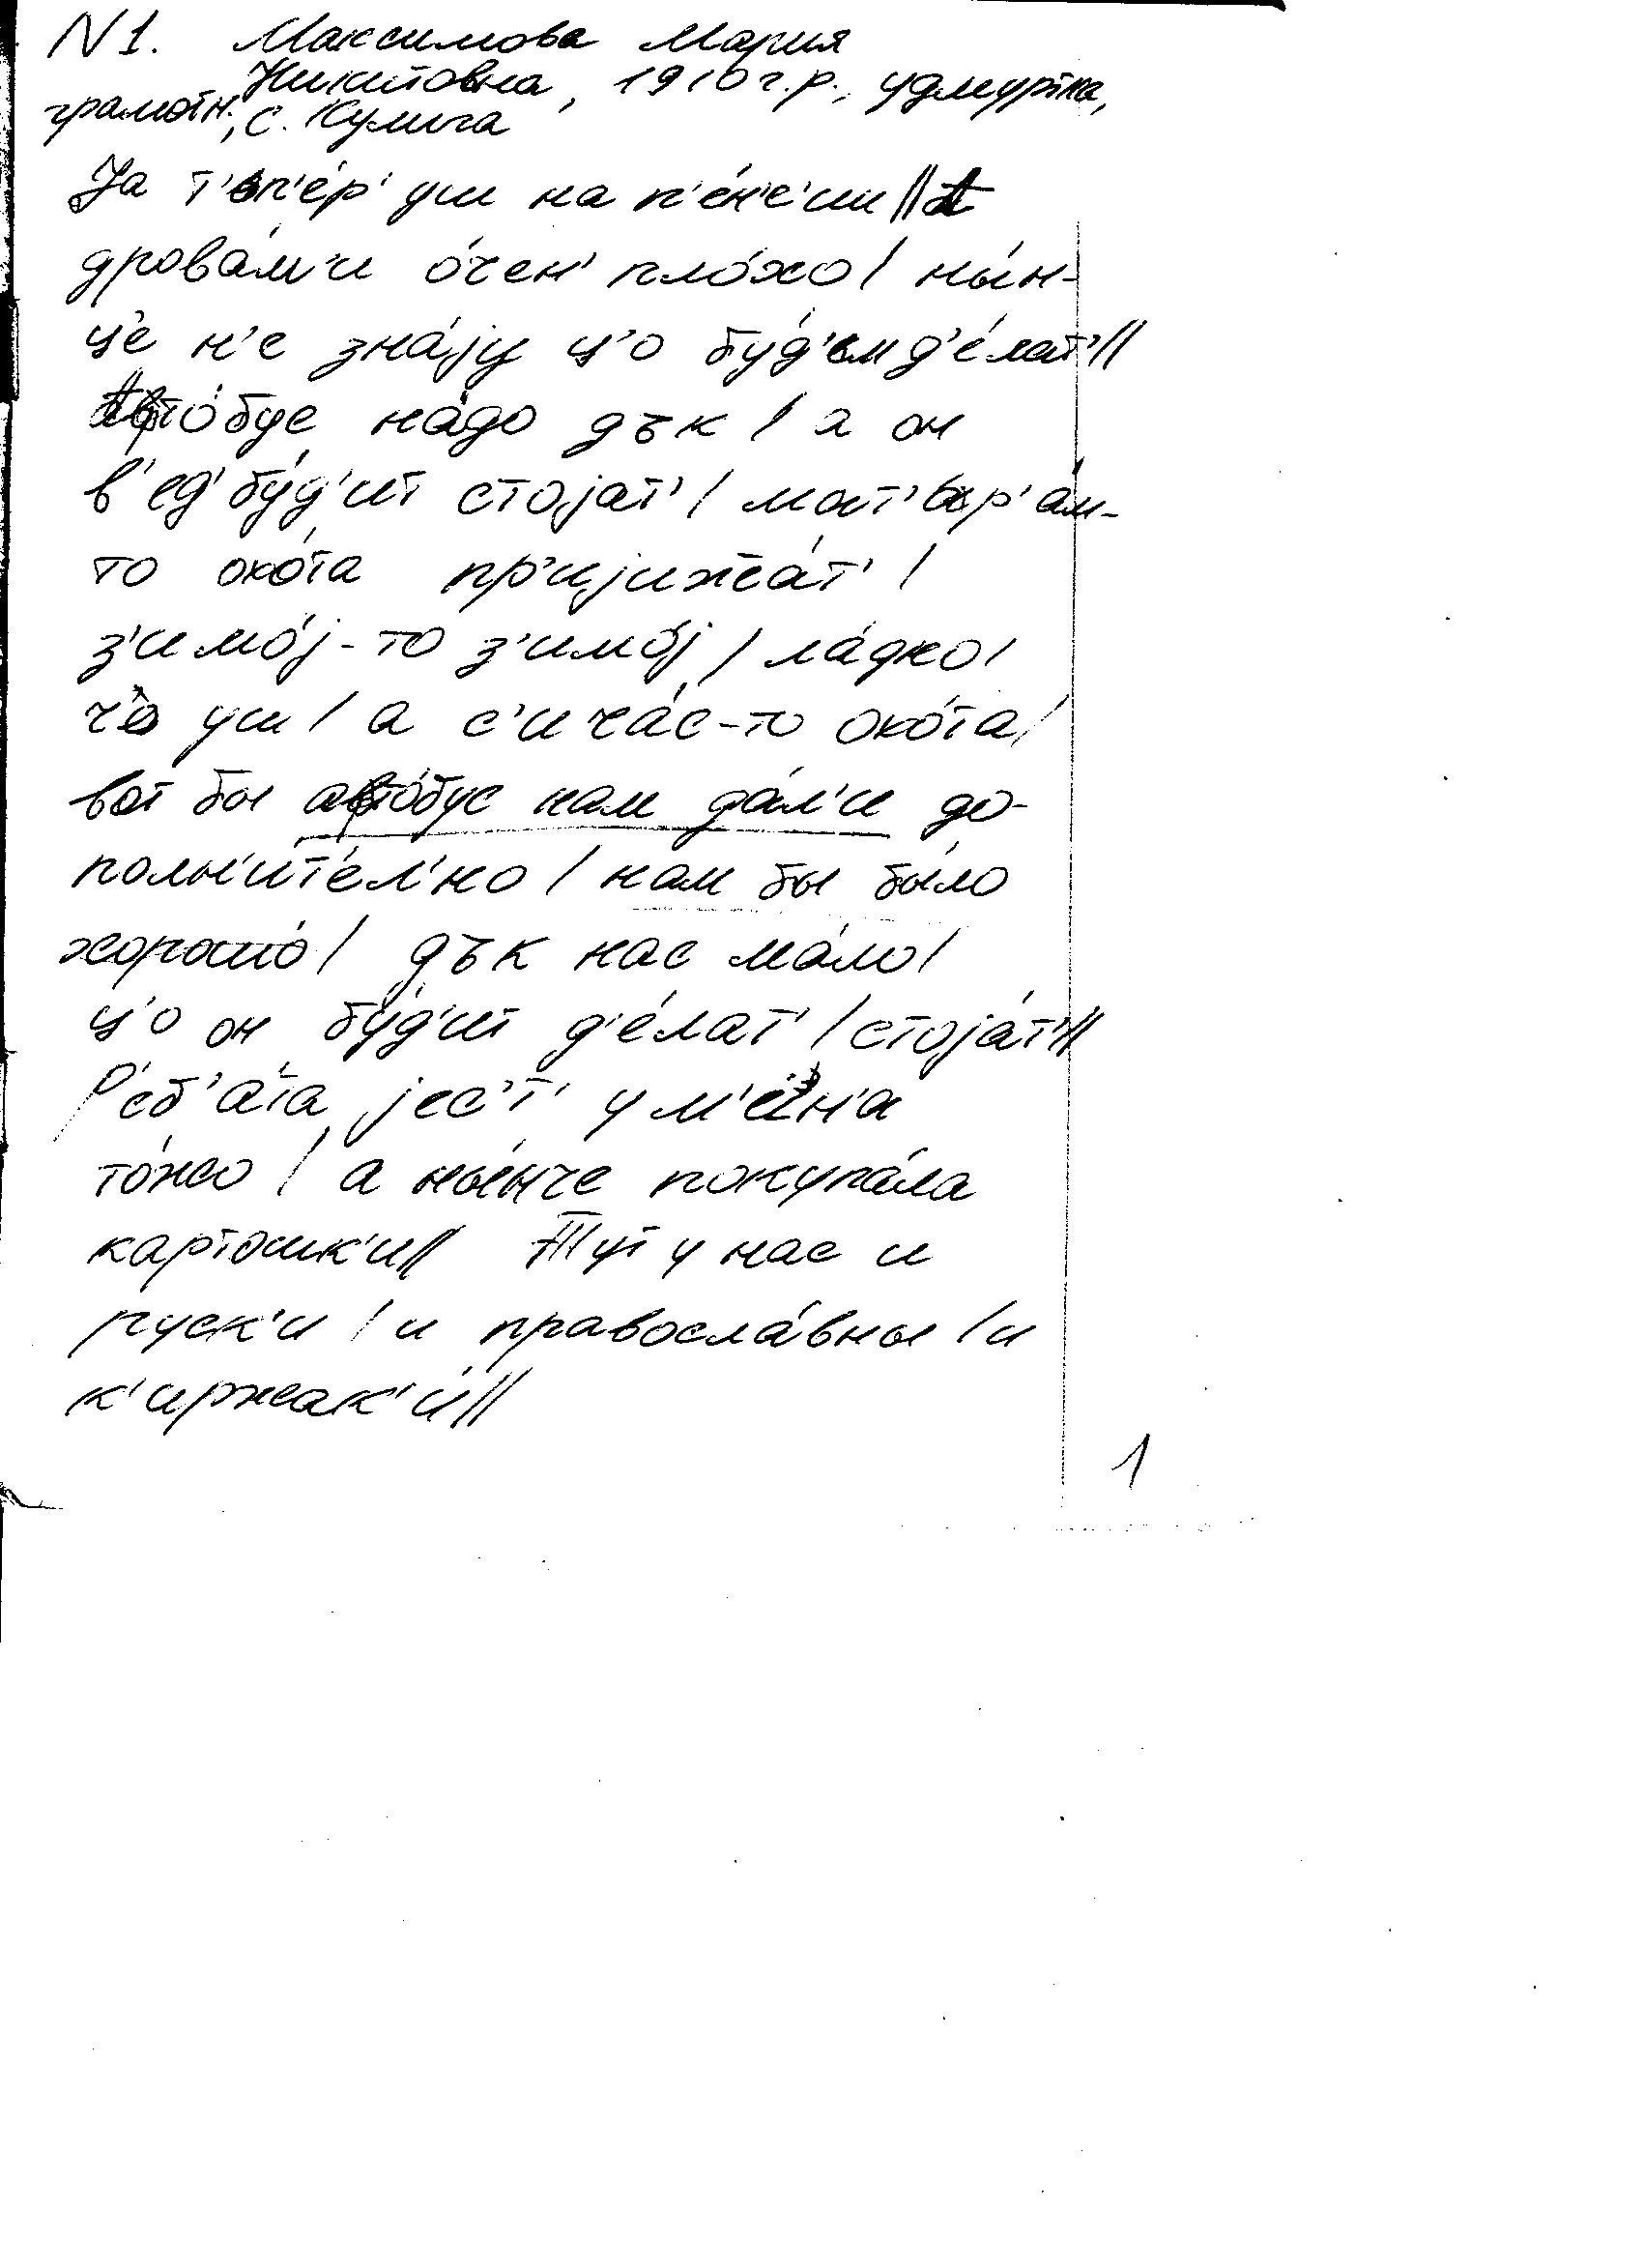 N 1. Максимова Мария
Никитовна, 1910 г.р., удмуртка,
грамотн., с. Кулига
Ја т'ьп'е́р' уш на п'е́н'с'ии || А
дрова́м'и о́чен' пло́хо / ны́н-
ц'е н'е зна́ју ц'о бу́д'ьм д'е́лат' ||
Афто́бус на́до дък / а он
в'ед' бу́д'ит стојат' / мат'ьр'а́м-
то охо́та пр'ијижжа́т' /
з'имо́ј-то з'имо́ј / ла́дно /
ч'о уш / а с'ича́с-то охо́та /
вот бы афто́бус нам да́л'и до-
полн'и́т'ел'но / нам бы бы́ло
хорошо́ / дък нас ма́ло /
ц'о он бу́д'ит д'е́лат' / стоја́т' ||
Р'еб'а́та јес'т' у м'ин'а
то́жо / а ны́нче покупа́ла
картошк'и || Тут у нас и
руск'и / и правосла́вны / и
к'иржак'и́ ||
1